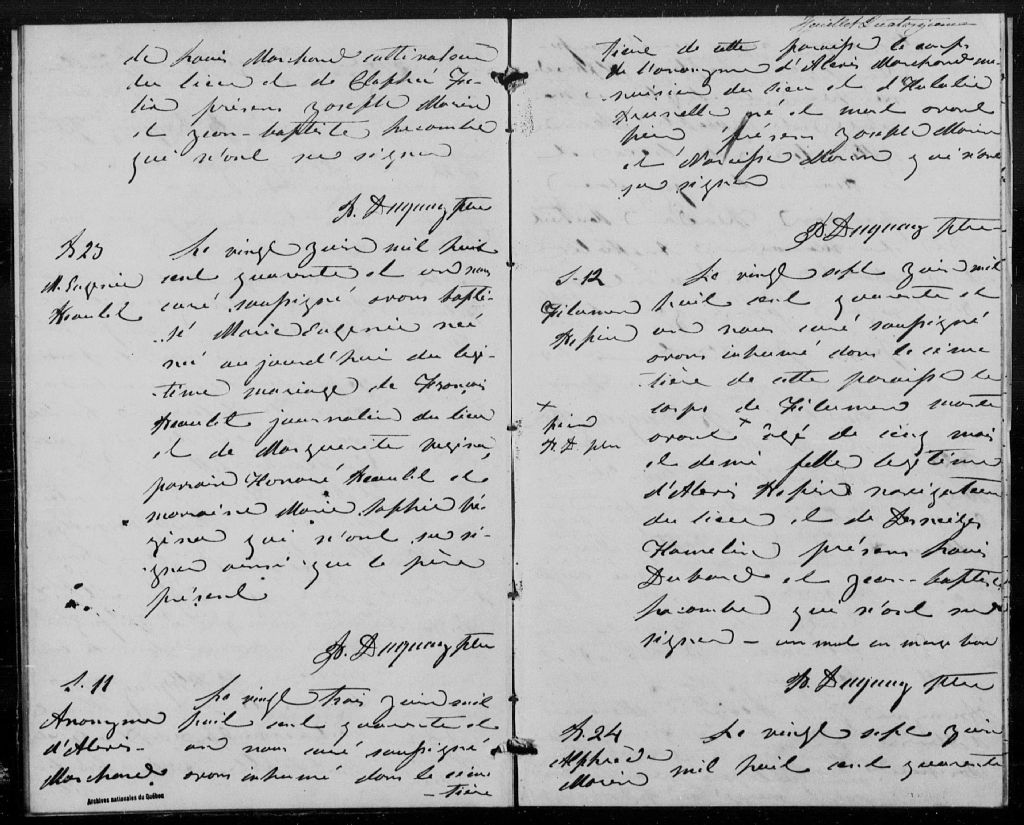 de Louis Marchand cultivateur
du lieu et de
présens Joseph Morin
et Jean-baptiste Lacombe
qui n'ont su signer
Duguay ptre
B 23
M. Eugénie
Le vingt Juin mil huit
cent quarante et un nous
curé soussigné avons bapti-
sé Marie Eugénie née
née aujourd'hui du legi-
time mariage de François
journalier du lieu
et de Marguerite
parrain Honoré et
marraine Marie Sophie
qui n'ont su si-
gner ainsi que le père
présent
Duguay ptre
S. 11
Anonyme
d'Alexis
Marchand
Le vingt trois Juin mil
huit cent quarante et
un nous curé soussigné
avons inhumé dans le cime
-tière
Archives nationales du Québec
Feuillet Quatorzieme
tière de cette paroisse le corps
de l'anonyme d'Alexis Marchand me-
nuisier du lieu et d'Eulalie
né et mort avant
présens Joseph Morin
et Narcisse Morin qui n'ont
su signer
Duguay ptre
S-12
Filumen
Le vingt sept Juin mil
huit cent quarante et
un nous curé soussigné
avons inhumé dans le cime
-tière de cette paroisse le
corps de Filumen morte
âgé de cinq mois
et demi fille legitime
d'Alexis navigateur
du lieu et de
Hamelin présens Louis
et Jean-baptiste
Lacombe qui n'ont su
signer - un mot en marge bon
Duguay ptre
B. 24
Morin
Le vingt sept Juin
mil huit cent quarante